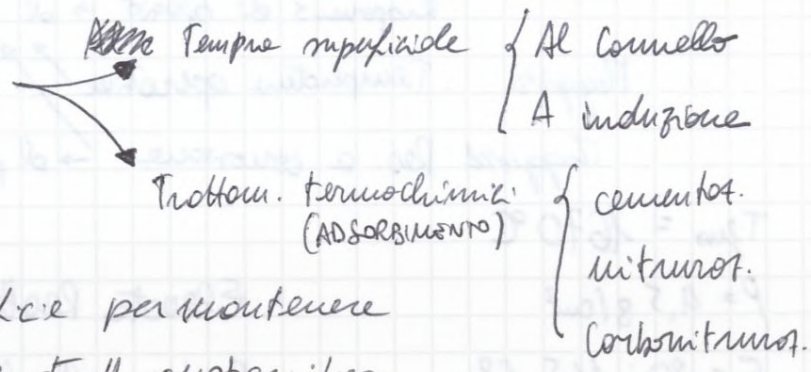 Tempra superficiale { Al Cannello
A induzione
Trattam. termochimici { cementaz.
(ADSORBIMENTO)
nitruraz.
Carbonitruraz.
per mantenere